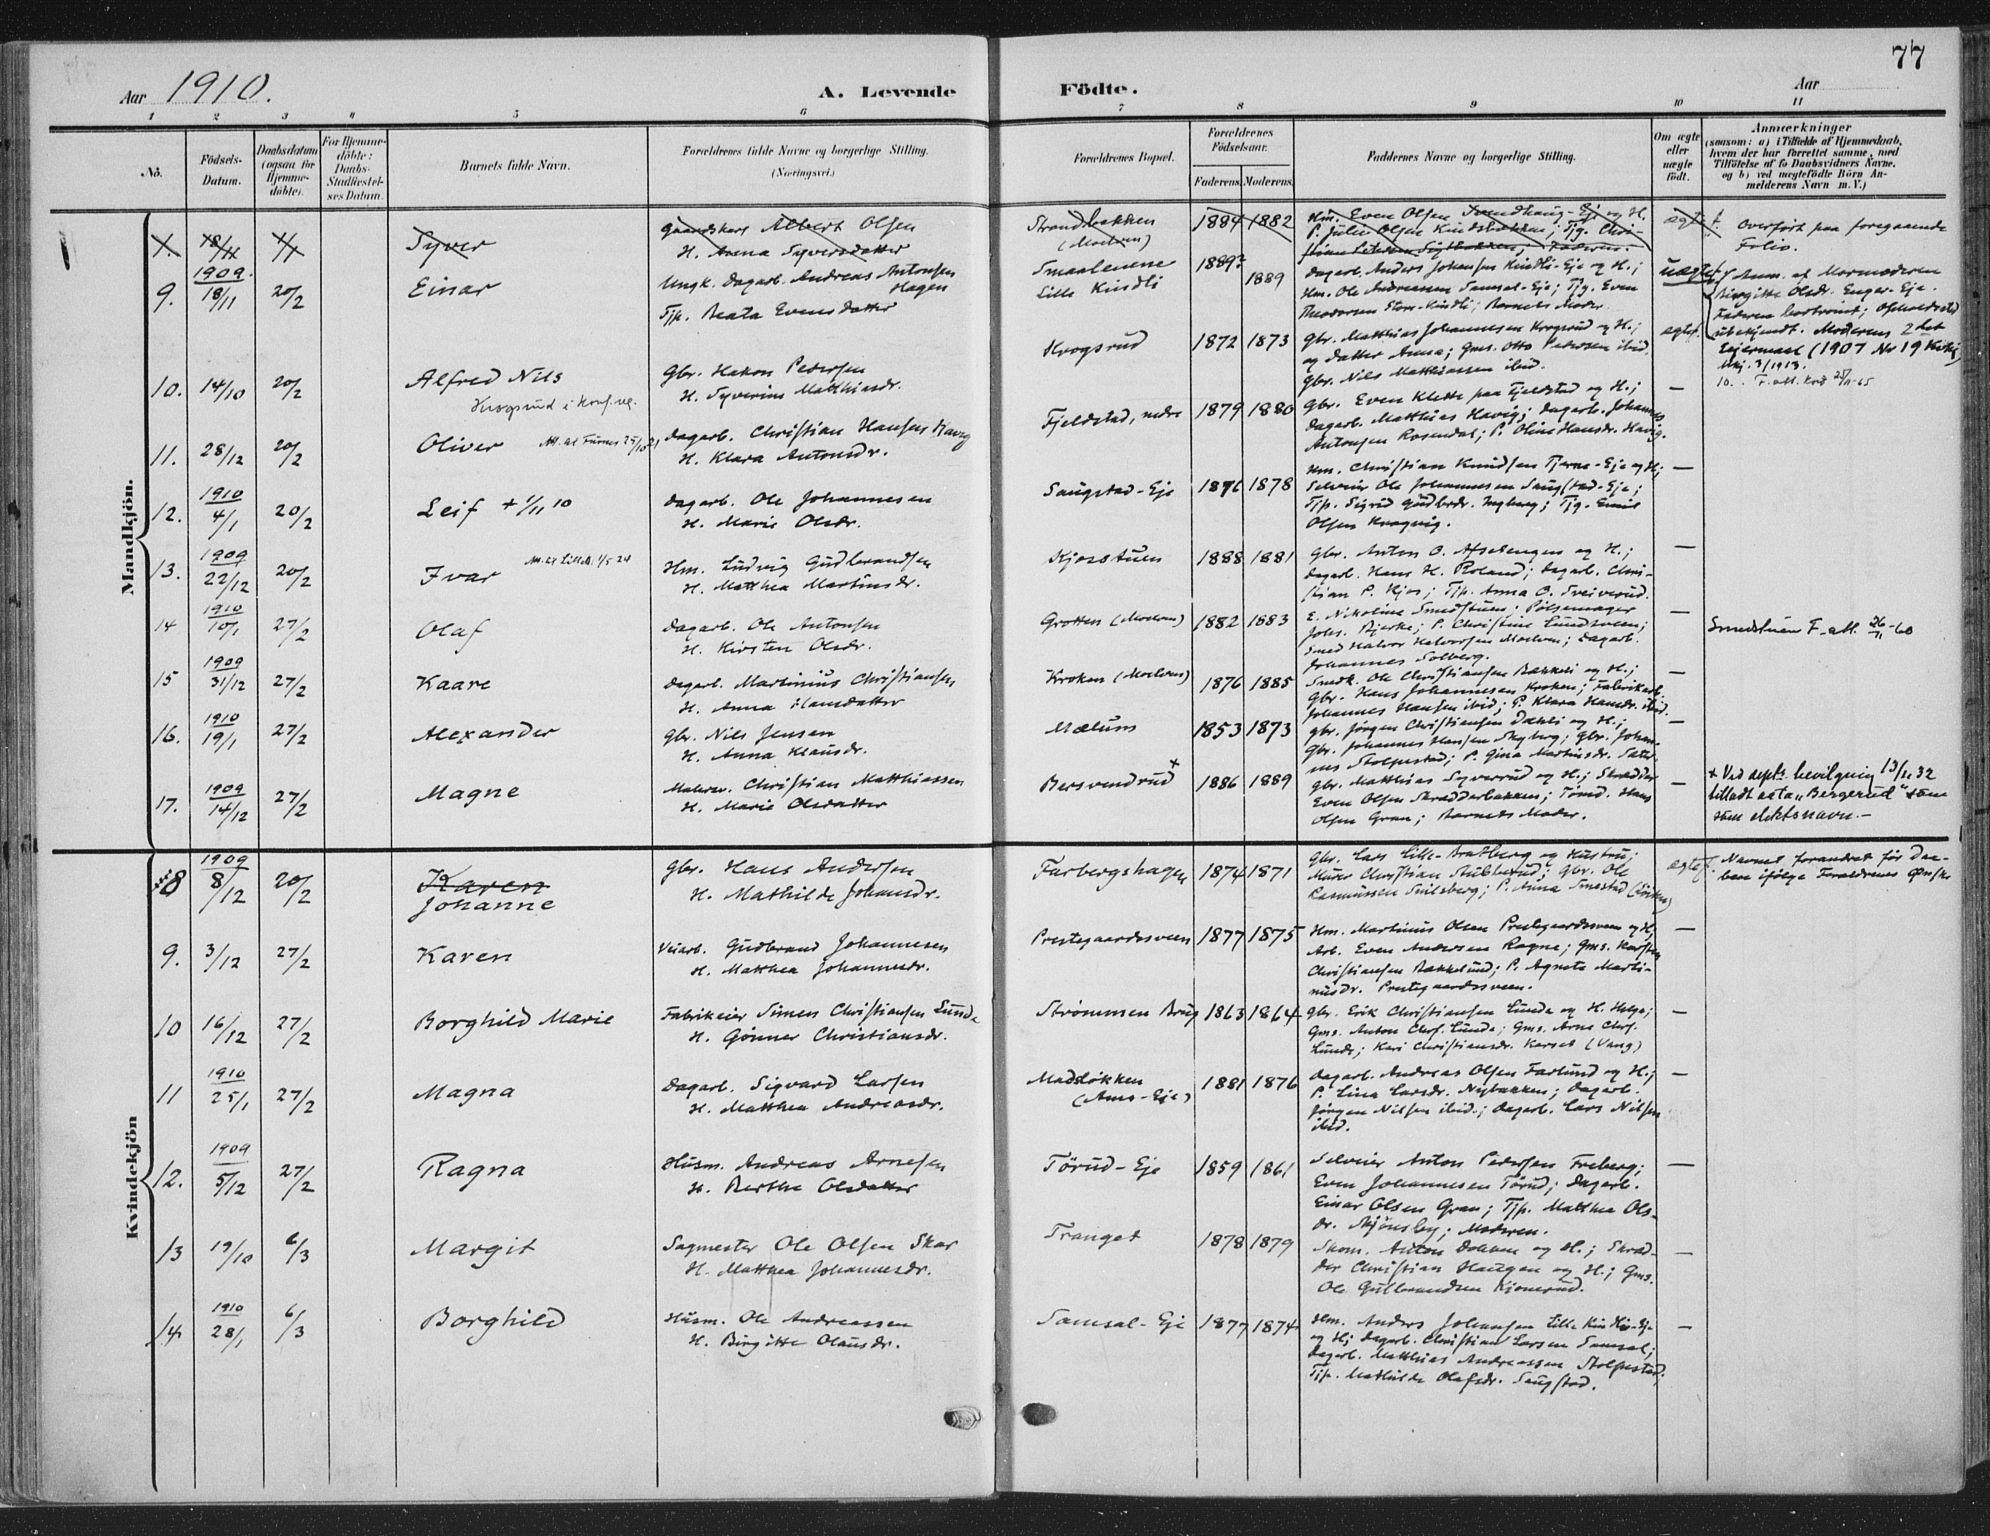 77
Aar 1910. A. Levende Födte. Aar
1 2 3 4 5 6 7 8 9 10 11
No.
Födsels-
Datum.
Daabsdatum
(ogsaa for
Hjemme-
döbte).
For Hjemme-
döbte:
Daabs-
Stadfæstel-
ses Datum.
Barnets fulde Navn.
Forældrenes fulde Navne og borgerlige Stilling.
(Næringsvei.)
Forældrenes Bopæl.
Forældrenes
Födselsaar.
Faderens. Moderens.
Faddernes Navne og borgerlige Stilling.
Om ægte
eller
uægte
födt.
Anmærkninger
(saasom: a) i Tilfælde af Hjemmedaab,
hvem der har forrettet samme, med
Tilföielse af to Daabsvidners Navne,
og b) ved uægtefödte Börn An-
melderens Navn m. V.)
Mandkjön.
Syver
Albert Olsen
H. Anna Syversdatter
Strandbakken
(Moelven)
1884 1882
Hm. Even Olsen
Overført paa foregaaende
Folio.
9.
1909.
18/11
20/2
Einar
Ungk. Dagarb. Andreas Antonsen
Hagen
Tjp. Beata Evensdatter
Smaalenene
Lille Kindli
1889?
1889
Dagarb. Anders Johansen Kindli-Eje og H.;
Hm. Ole Andreassen Samsal-Eje; Tjg. Even
Theodorsen Stor-Kindli; Barnets Moder.
uægtef.
Anm. af Mormoderen
Birgitte Olsdr. Enger-Eje.
Faderen bortreist; Opholdssted
ubekjendt. Moderens 2det
Leiermaal (1907 Nr 19 Kvkj)
10. 14/10 20/2
Alfred Nils
Krogsrud i Konf. reg.
Gbr. Hakon Pedersen
H. Syverine Matthiasdr.
Krogsrud
1872 1873
Gbr. Matthias Johannesen Krogsrud og H.;
og Datter Anna; Gms. Otto Pedersen ibid.
Gbr. Nils Matthiassen ibid.
ægtef.
11. 28/12 20/2
Oliver
Dagarb. Christian Hansen Havig
H. Klara Antonsdr.
Fjeldstad, nedre
1879 1880
Gbr. Even Klette paa Fjeldstad og H.;
Dagarb. Matthias Havig; Dagarb. Johannes
Antonsen Rosendal; P. Oline Hansdr. Havig.
—
12.
1910
4/1
20/2
Leif + 1/11 10
Dagarb. Ole Johannesen
H. Marie Olsdr.
Saugstad-Eje
1876 1878
Hm. Christian Knudsen Tjerne-Eje og H;
Selveier Ole Johannesen Saugstad-Eje;
Tjp. Sigrid Gudbrdr. Ingberg; Tjg. Emil
Olsen Kragvig.
—
13.
1909
22/12
20/2
Ivar
Hm. Ludvig Gudbrandsen
H. Matthea Martinsdr.
Kjosstuen
1888 1881
Gbr. Anton O. Afselengen og H.;
Dagarb. Hans H. Roland; Dagarb. Chri-
stian P. Kjos; Tjp. Anna O. Sveiverud.
—
14
1910
10/1
27/2
Olaf
Dagarb. Ole Antonsen
H. Kirsten Olsdr.
Grotten (Moelven)
1882 1883
E. Nikoline Smedstuen; Pølsemager
Johs. Bjerke; P. Christine Lundsveen;
Smed Halvor Halvorsen Moelven; Dagarb.
Johannes Solberg.
—
Smedstuen F. att. 26/11-60
15
1909
31/12
27/2
Kaare
Dagarb. Martinius Christiansen
H. Anna Hansdatter
Kroken (Moelven)
1876 1885
Smedk. Ole Christiansen Bakkeli og H.;
Gbr. Hans Johannesen Kroken; Fabrikarb.
Johannes Hansen ibid; P. Klara Hansdr. ibid.
—
16.
1910
19/1
27/2
Alexander
Gbr. Nils Jensen
H. Anna Klausdr.
Mælum
1853 1873
Gbr. Jørgen Christiansen Dæhli og H.;
Gbr. Johannes Hansen Skyberg; Gbr. Johan-
nes Stolpestad; P. Gina Martinsdr.
—
17.
1909
14/12
27/2
Magne
Malerm. Christian Matthiassen
H. Marie Olsdatter
Bersvendrud +
1886 1889
Gbr. Matthias Syverud og H.; Skrædder
Even Olsen Skrædderbakken; Tømd. Hans
Olsen Gran; Barnets Moder.
—
+ Ved depts. bevilgning 13/11 32
tilladt anta „Bergerud“
som slektsnavn. —
Kvindekjön
8
1909
8/12
20/2
Karen
Johanne
Gbr. Hans Andersen
H. Mathilde Johansdr.
Farbergshagen
1874 1871
Gbr. Lars Lille-Bratberg og Hustru;
Murer Christian Stubberud; Gbr. Ole
Rasmussen Snilsberg; P. Anna Smestad
ægtef.
Navnet forandret før Daa-
ben ifølge Forældrenes Ønske
9. 3/12 27/2
Karen
Veiarb. Gudbrand Johannesen
H. Matthea Johannesdr.
Prestegaardssveen
1877 1875
Hm. Martinius Olsen Prestegaardssveen og H;
Arb. Even Andersen Ragne; Gms. Karsten
Christiansen Bakkelund; P. Agnete Marti-
nusdr. Prestegaardssveen.
—
10 16/12 27/2
Borghild Marie
Fabrikeier Simen Christiansen Lunde
H. Gønner Christiansdr.
Strømmen Brug
1863 1864
Gbr. Erik Christiansen Lunde og H. Helga;
Gms. Anton Chrs. Lunde; Gms. Arne Chrs.
Lunde; Kari Christiansdr. Karset (Vang)
—
11
1910
25/1
27/2
Magna
Dagarb. Sigvard Larsen
H. Matthea Andreasdr.
Madsløkken
(Ams-Eje)
1881 1876
Dagarb. Andreas Olsen Farlund og H.;
P. Lina Larsdr. Nybakken; Dagarb.
Jørgen Nilsen ibid.; Dagarb. Lars Nilsen
ibid.
—
12.
1909
5/12
27/2
Ragna
Husm. Andreas Arnesen
H. Berthe Olsdatter
Tørud-Eje
1859 1861
Selveier Anton Pedersen Freberg;
Even Johannesen Tørud; Dagarb.
Einar Olsen Gran; Tjp. Matthea Ols-
dr. Skjønsby; Moderen.
—
13 19/10 6/3
Margit
Sagmester Ole Olsen Skar
H. Matthea Johannesdr.
Tranget
1878 1879
Skom. Anton Dolven og H.; Skræd-
der Christian Haugen og H.; Gms.
Ole Gulbrandsen Kjonerud.
—
14
1910
28/1
6/3
Borghild
Husm. Ole Andreassen
H. Birgitte Olausdr.
Samsal-Eje
1877 1874
Hm. Anders Johansen Lille Kindli-Eje
og H; Dagarb. Christian Larsen Samsal;
Dagarb. Matthias Andreassen Stolpestad;
Tjp. Mathilde Olafsdr. Saugstad.
—